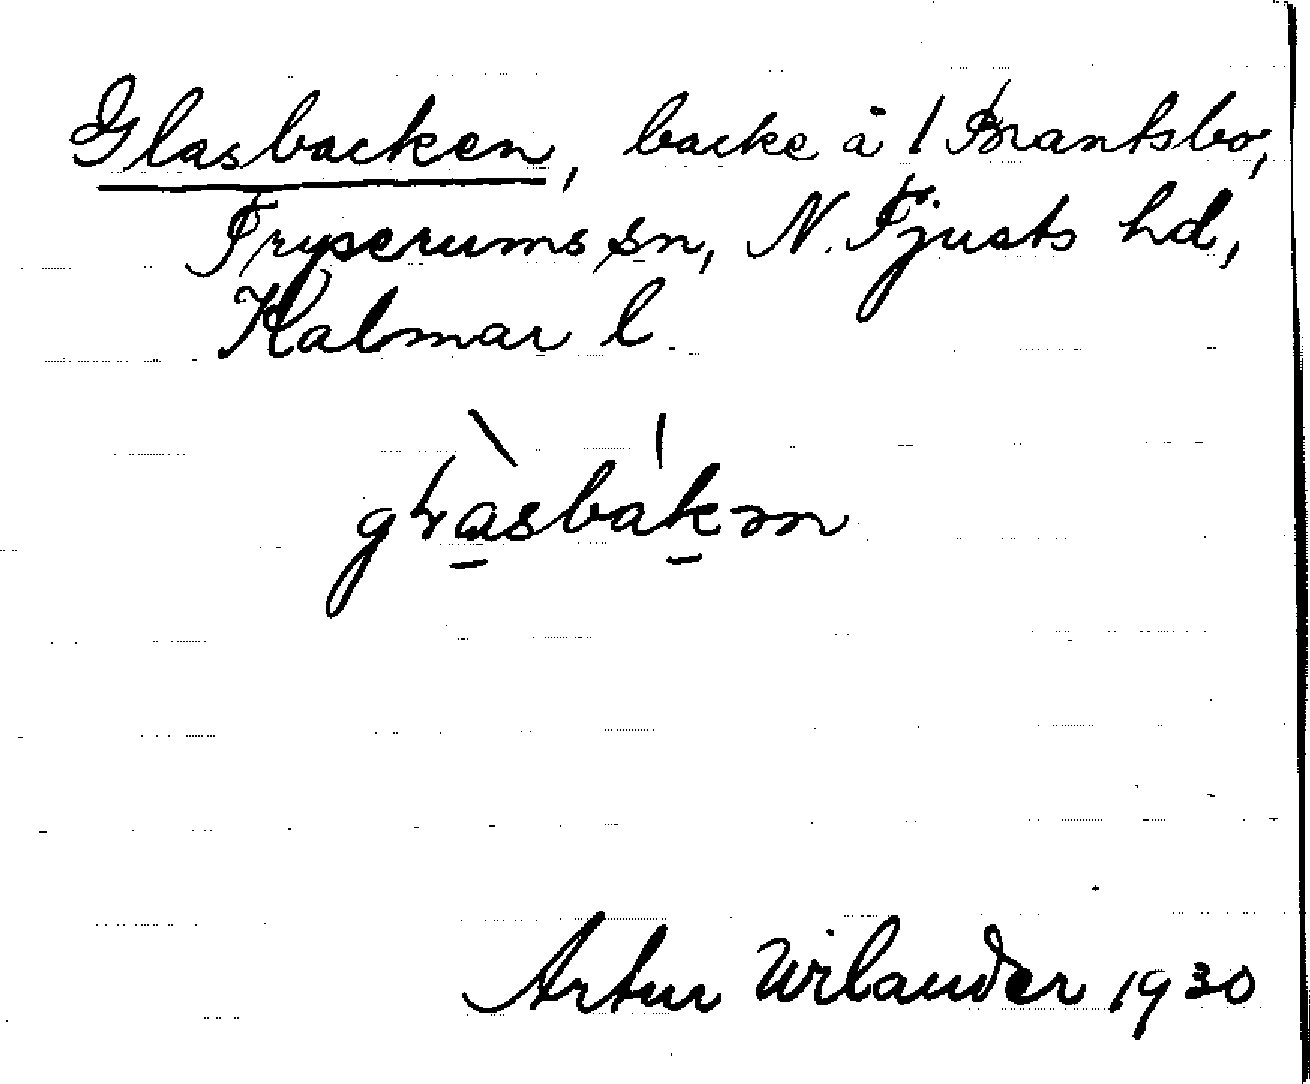 Glasbacken, backe å 1 Brantsbo,
Tryserums sn, N. Tjusts hd,
Kalmar l
Artur Wilander 1930